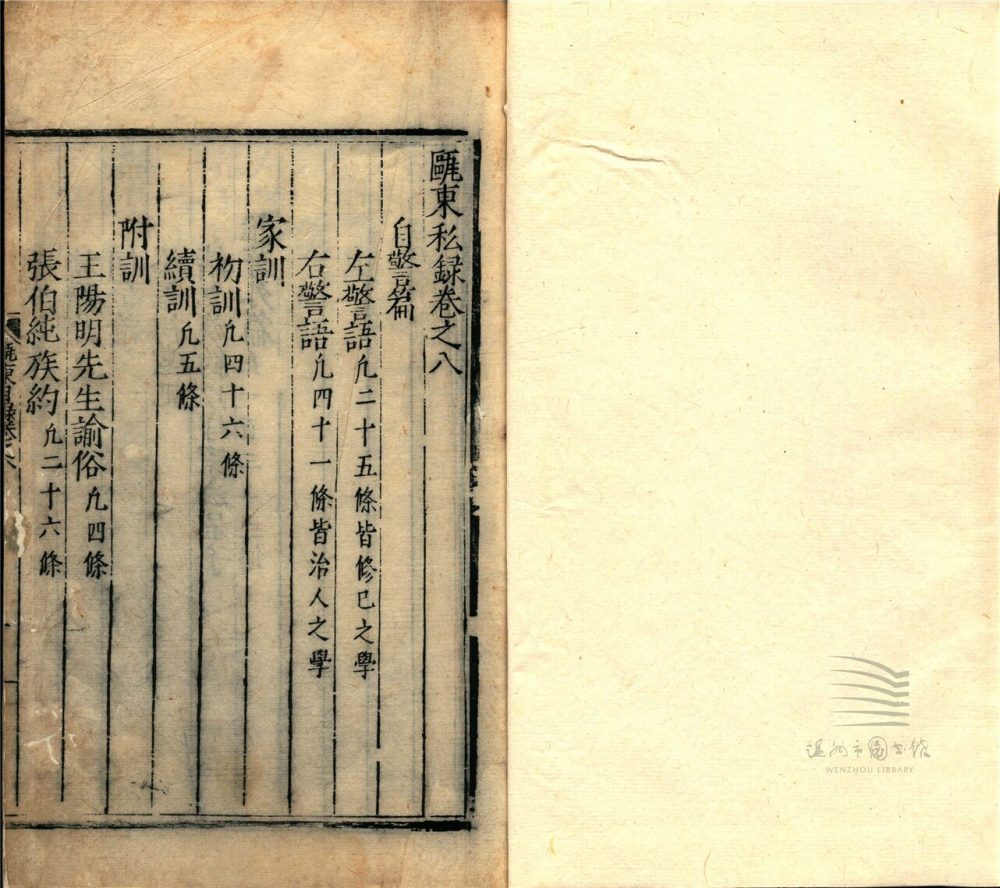 甌東私録卷之八
自警篇
左警語凢二十五條皆修己之學
右警語凢四十一條皆治人之學
家訓
初訓凢四十六條
續訓凢五條
附訓
王陽明先生諭俗凢四條
張伯純族約凢二十六條
温州市圖书馆
WENZHOU LIBRARY